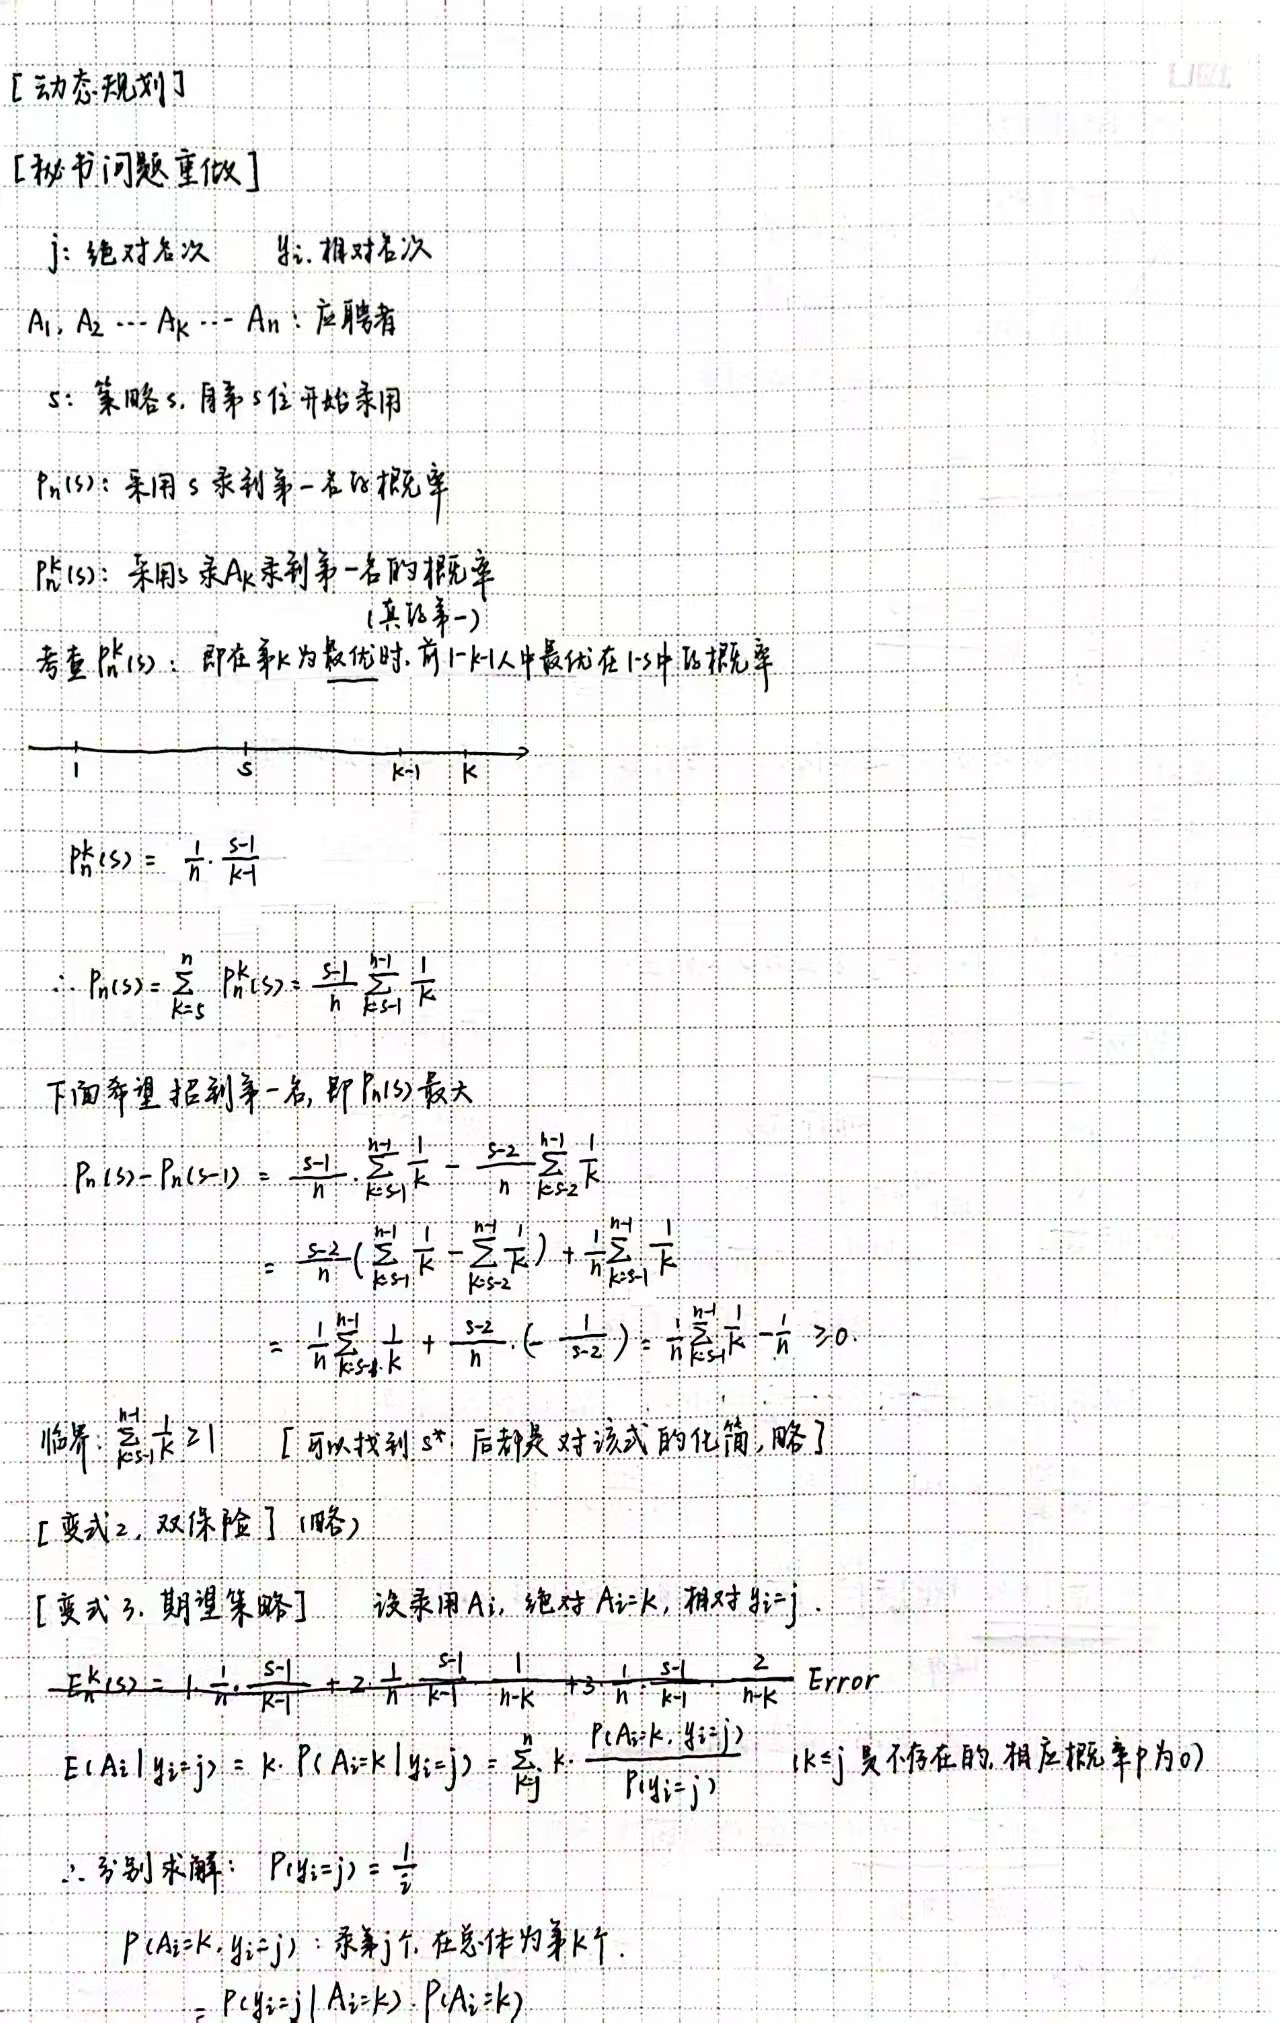 [动态规划]
[秘书问题重做]
j: 绝对名次 yi: 相对名次
A1, A2 ··· Ak ··· An : 应聘者
s: 策略s, 自第s位开始录用
Pn(s): 采用s录到第一名的概率
Pn^k(s): 采用s录Ak录到第一名的概率
(真的第一)
考查Pn^k(s): 即在第k为最优时, 前1-k-1人中最优在1-s中的概率
1 s k-1 k
Pn^k(s) = 1/n · (s-1)/(k-1)
∴ Pn(s) = Σ_{k=s}^{n} Pn^k(s) = (s-1)/n Σ_{k=s-1}^{n-1} 1/k
下面希望招到第一名, 即Pn(s)最大
Pn(s) - Pn(s-1) = (s-1)/n · Σ_{k=s-1}^{n-1} 1/k - (s-2)/n Σ_{k=s-2}^{n-1} 1/k
= (s-2)/n (Σ_{k=s-1}^{n-1} 1/k - Σ_{k=s-2}^{n-1} 1/k) + 1/n Σ_{k=s-1}^{n-1} 1/k
= 1/n Σ_{k=s-1}^{n-1} 1/k + (s-2)/n · (- 1/(s-2)) = 1/n Σ_{k=s-1}^{n-1} 1/k - 1/n ≥0.
临界: Σ_{k=s-1}^{n-1} 1/k ≥1 [可以找到s*, 后都是对该式的化简, 略]
[变式2, 双保险] (略)
[变式3. 期望策略] 设录用Ai, 绝对Ai=k, 相对yi=j.
En^k(s) = 1· 1/n · (s-1)/(k-1) + 2· 1/n · (s-1)/(k-1) · 1/(n-k) + 3· 1/n · (s-1)/(k-1) · 2/(n-k) Error
E(Ai|yi=j) = k· P(Ai=k|yi=j) = Σ_{k=j}^{n} k· P(Ai=k, yi=j)/P(yi=j) (k≤j是不存在的, 相应概率P为0)
∴ 分别求解: P(yi=j) = 1/i
P(Ai=k, yi=j) : 录第j个, 在总体为第k个.
= P(yi=j|Ai=k)·P(Ai=k)